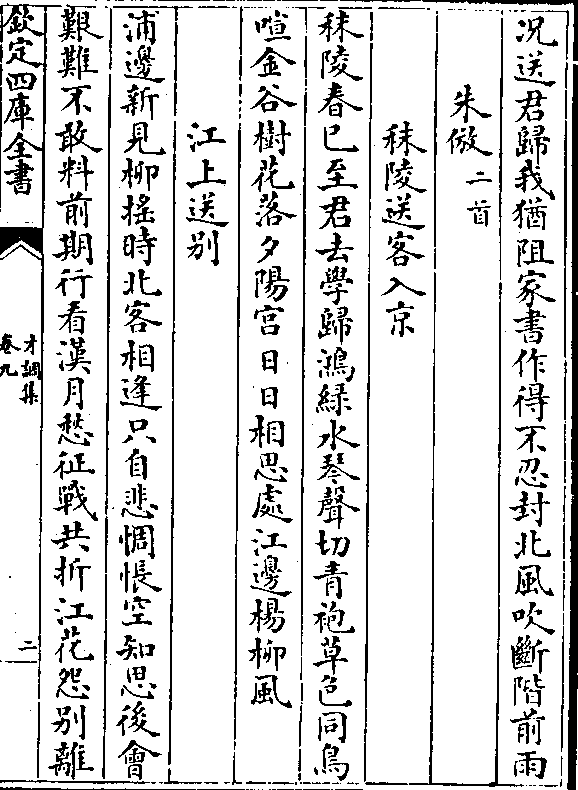 况送君歸我猶阻家書作得不忍封北風吹斷階前雨
朱倣二首
秣陵送客入京
秣陵春已至君去學歸鴻緑水琴聲切青袍草色同鳥
喧金谷樹花落夕陽宫日日相思處江邊楊柳風
江上送别
浦邊新見柳揺時北客相逢只自悲惆悵空知思後會
艱難不敢料前期行看漢月愁征戰共折江花怨别離
欽定四庫全書
才調集
卷九
二